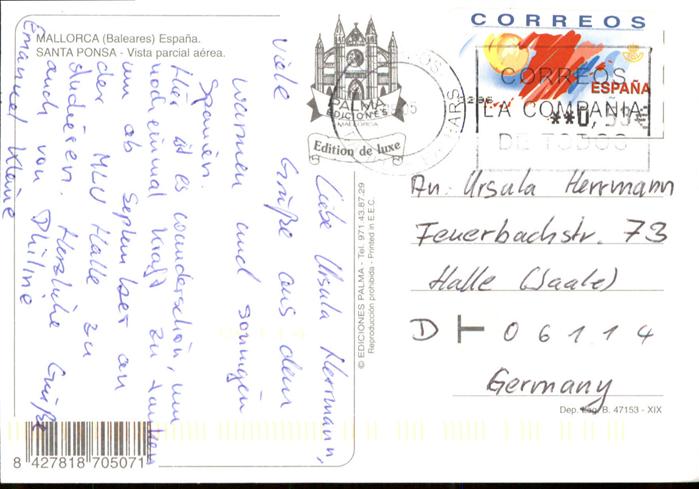 MALLORCA (Baleares) España.
SANTA PONSA - Vista parcial aérea.
Liebe Ursula Herrmann,
viele Grüße aus dem
warmen und sonnigen
Spanien.
Hier ist es wunderschön, um
noch einmal Kraft zu tanken
um ab September an
der MLU Halle zu
studieren. Herzliche Grüße
auch von Philine
Emanuel Kleine
PALMA
EDICIONES
MALLORCA
Edition de luxe
© EDICIONES PALMA - Tel. 971 43.87.29
Reproducción prohibida - Printed in E.E.C.
CORREOS
ESPAÑA
CORREOS
LA COMPAÑIA
DE TODOS
An: Ursula Herrmann
Feuerbachstr. 73
Halle (Saale)
D - 06114
Germany
Dep. Leg. B. 47153 - XIX
8 427818 705071